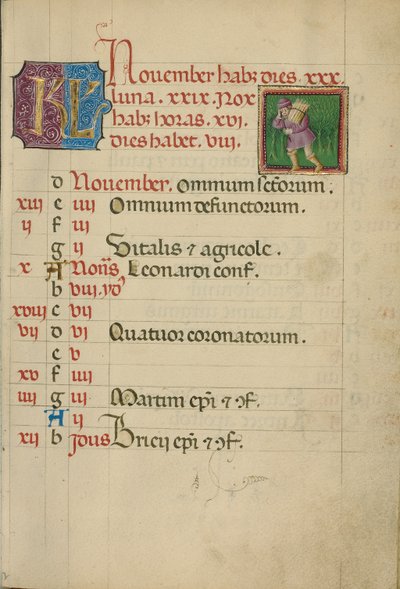 KL November habet dies. xxx.
luna. xxix. Nox
habet horas. xvi.
dies habet. viii.
d November. Omnium sctorum.
xiii e iiii Omnium defunctorum.
ii f iii
g ii Vitalis et agricole.
x A Nonis Leonardi conf.
b viii. yd9
xviii c vii
vii d vi Quatuor coronatorum.
e v
xv f iiii
iiii g iii Martini epi et cf.
A ii
xii b Idus Bricii epi et cf.